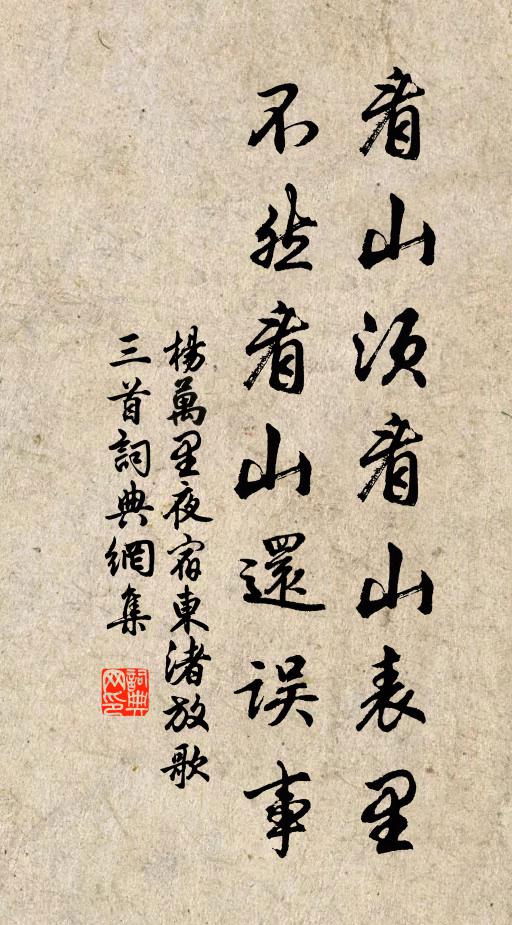 看山须看山表里
不然看山還误事
楊萬里夜宿東渚放歌
三首詞典網集
詞典网印